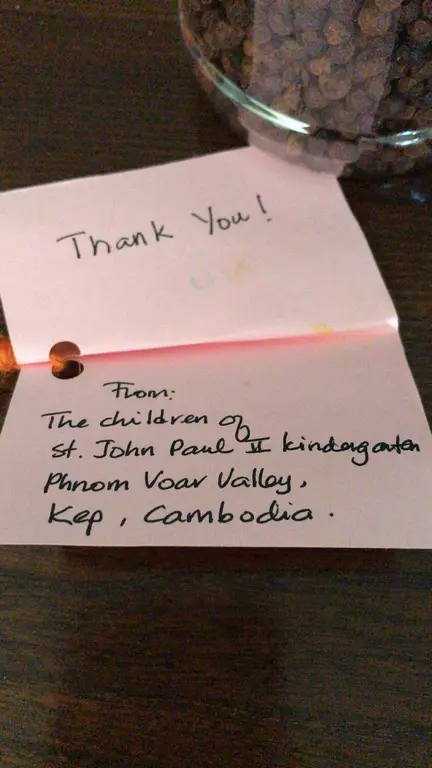 Thank You!
From:
The children of
St. John Paul II kindergarten
Phnom Voar Valley,
Kep, Cambodia.